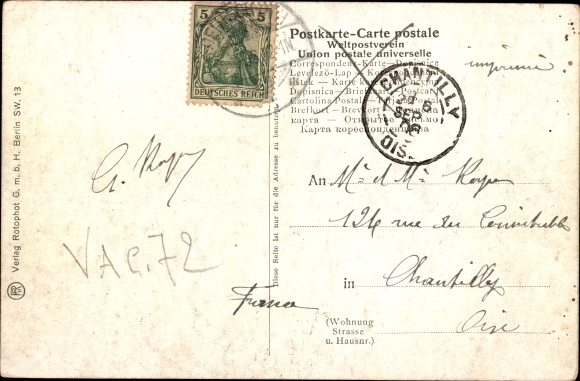 5 5
DEUTSCHES REICH
Postkarte-Carte postale
Weltpostverein
Union postale universelle
Correspondenz-Karte
Levelező-Lap
Dopisnica
Cartolina Postale
Brefkort - Brevkort
карта
Карта
imprimé
CHANTILLY
OISE
G.
VAC.72
France
Verlag Rotophot G. m. b. H. Berlin SW. 13
Diese Seite ist nur für die Adresse zu benutzen
An Mr et Me
124 rue du Connétable
in Chantilly
Oise
(Wohnung
Strasse
u. Hausnr.)